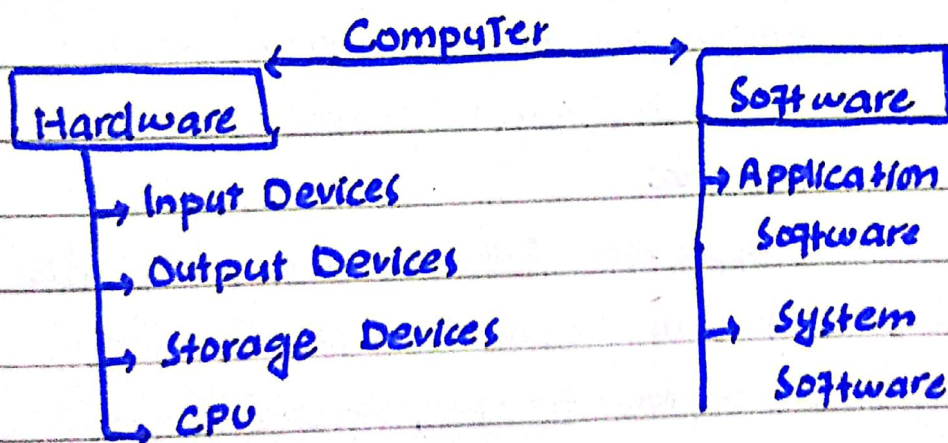 Computer
Hardware
Software
Input Devices
Output Devices
Storage Devices
CPU
Application
Software
System
Software